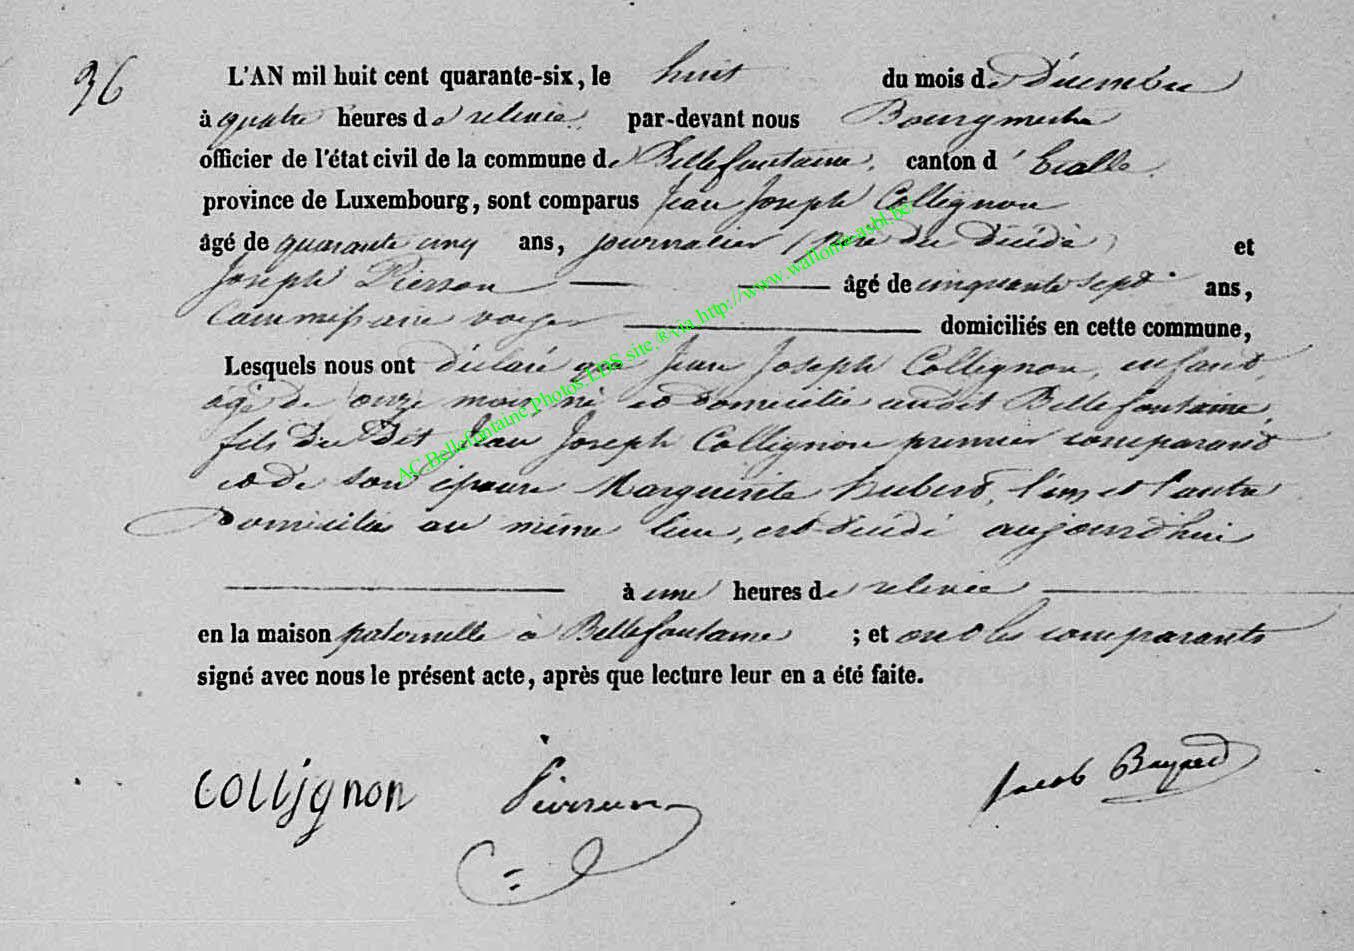 36
L'AN mil huit cent quarante-six, le huit du mois de Décembre
à quatre heures de relevée par-devant nous Bourgmestre
officier de l'état civil de la commune de Bellefontaine, canton d'Etalle,
province de Luxembourg, sont comparus Jean Joseph Collignon
âgé de quarante cinq ans, journalier, père du décédé, et
Joseph Pierson âgé de cinquante sept ans,
Commissaire voyer domiciliés en cette commune,
Lesquels nous ont déclaré que Jean Joseph Collignon, enfant,
âgé de onze mois, né et domicilié audit Bellefontaine,
fils du dit Jean Joseph Collignon premier comparant
et de son épouse Marguerite Hubert, l'un et l'autre
domiciliés au même lieu, est décédé aujourd'hui
à une heures de relevée
en la maison paternelle à Bellefontaine ; et ont les comparants
signé avec nous le présent acte, après que lecture leur en a été faite.
collignon Pierson Jacob Bayard
AC Bellefontaine Photos LDS site ®via http://www.wallonia-asbl.be/